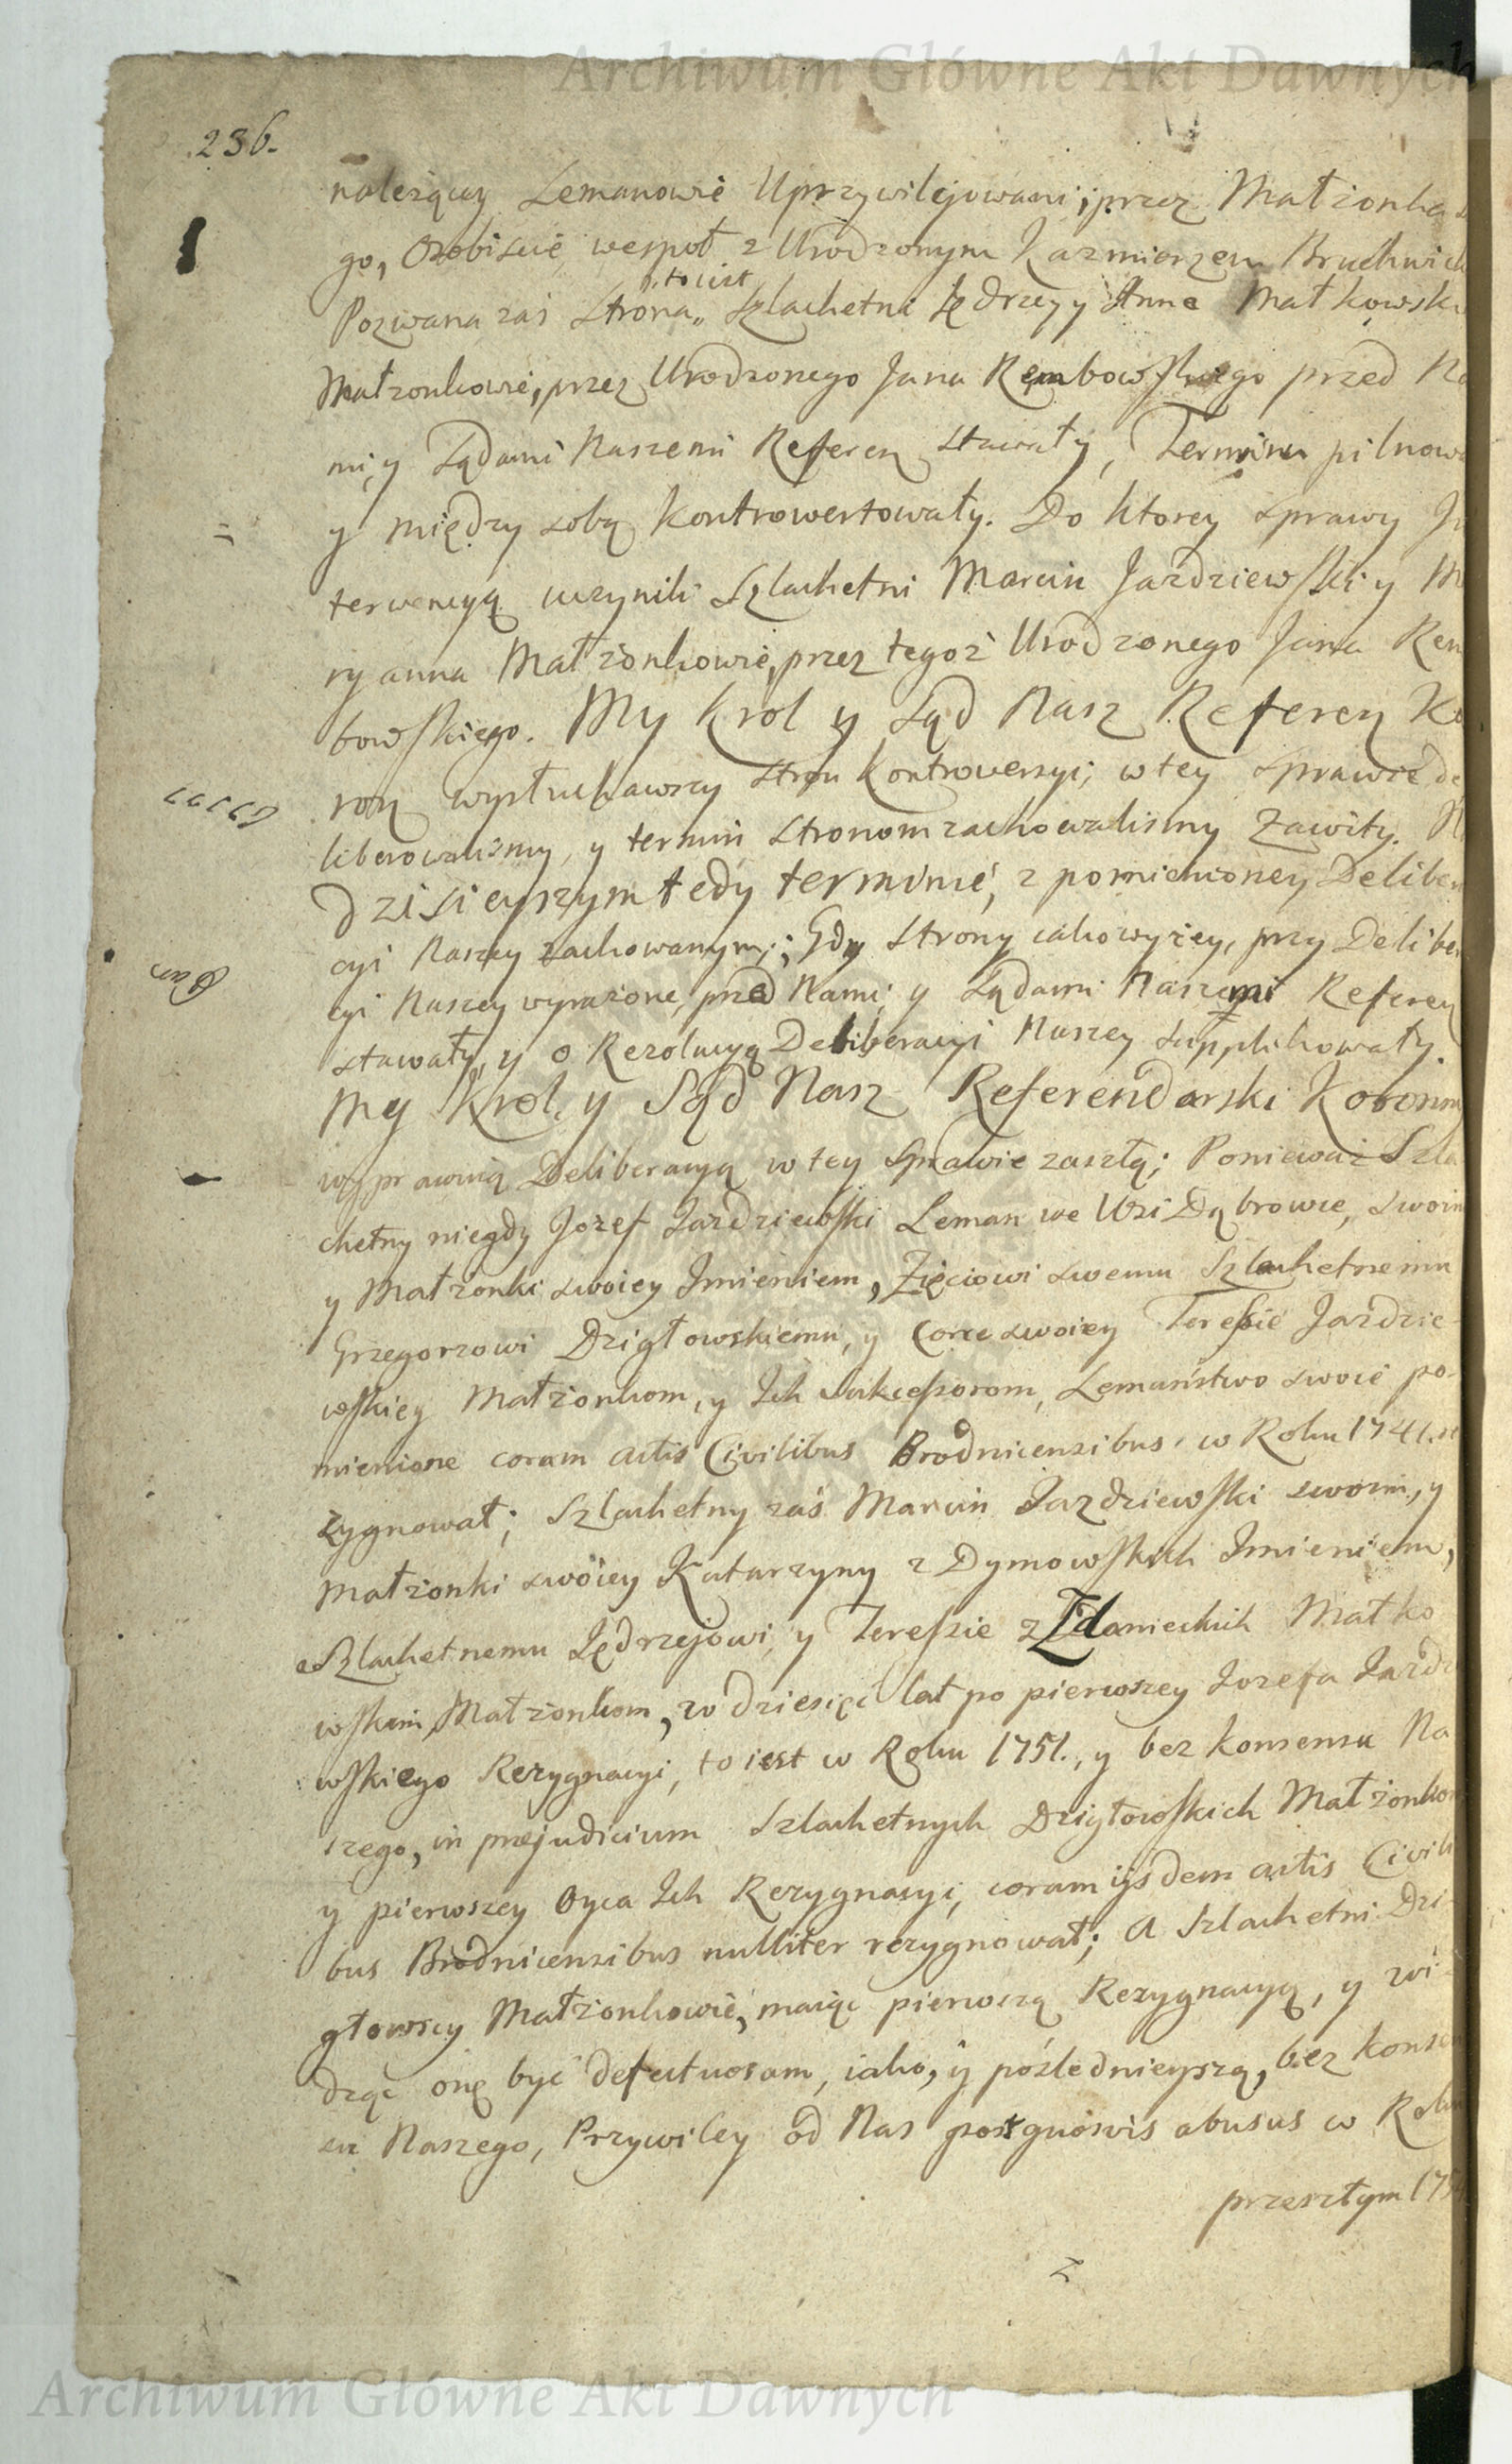 Archiwum Główne Akt Dawnych
236.
należący Lemanowie Uprzywilejowani, przez Małżonka
go, Osobiscie wespoł z Urodzonym Kazmierzem Bruchwick
to iest
Pozwana zaś Strona,, Szlachetni Jędrzey y Anna Małkowsk
Małżonkowie, przez Urodzonego Jana Rembowskiego przed Na
mi, y Sądami Naszemi Referen stawały, Terminu pilnowa
y między sobą kontrowertowały. Do ktorey sprawy In
terwencyą uczynili Szlachetni Marcin Jazdziewski y Ma
ryanna Małżonkowie, przez tegoż Urodzonego Jana Rem
bowskiego. My Krol y Sąd Nasz Referen Ko
ron wysłuchawszy stron Kontrowersyi, w tey sprawie de
liberowalismy, y termin stronom zachowalismy Zawity. N
Dzisieyszym tedy terminie, z pomienioney Delibera
cyi Naszey zachowanym; Gdy Strony iakowyżey, przy Deliber
cyi Naszey wyrażone, przed Nami y Sądami Naszemi Referen
stawały, y o Rezolucyą Deliberacyi Naszey supplikowały.
My Krol, y Sąd Nasz Referendarski Koronny
wyprawuią Deliberacyą w tey Sprawie zaszłą; Ponieważ Szla
chetny niegdy Jozef Jazdziewski Leman we Wsi Dąbrowie, swoim
y Małżonki swoiey Imieniem, Zięciowi swemu Szlachetnemu
Grzegorzowi Dzigłowskiemu, y Corce swoiey Teressie Jazdzie-
wskiey Małżonkom, y Ich Sukcessorom, Lemaństwo swoie po-
mienione coram actis Civilibus Brodnicensibus w Roku 1741. re
zygnował; Szlachetny zaś Marcin Jazdziewski swoim, y
Małżonki swoiey Katarzyny z Dymowskich Imieniem,
Szlachetnemu Jędrzejowi y Teressie z Zdanieckich Małko
wskim Małżonkom, w dziesięć lat po pierwszey Jozefa Jazdz
wskiego Rezygnacyi, to iest w Roku 1751., y bez konsensu Na
szego, in præjudicium Szlachetnych Dzigłowskich Małżonkow
y pierwszey Oyca Ich Rezygnacyi, coram iisdem actis Civili
bus Brodnicensibus nulliter rezygnował; A Szlachetni Dzi-
głowscy Małżonkowie, maiąc pierwszą Rezygnacyą, y wi-
dząc onę być defectuosam, iako, y poźlednieyszą, bez konsen
su Naszego, Przywiley od Nas post quosvis abusus w Roku
przeszłym 175
Archiwum Główne Akt Dawnych